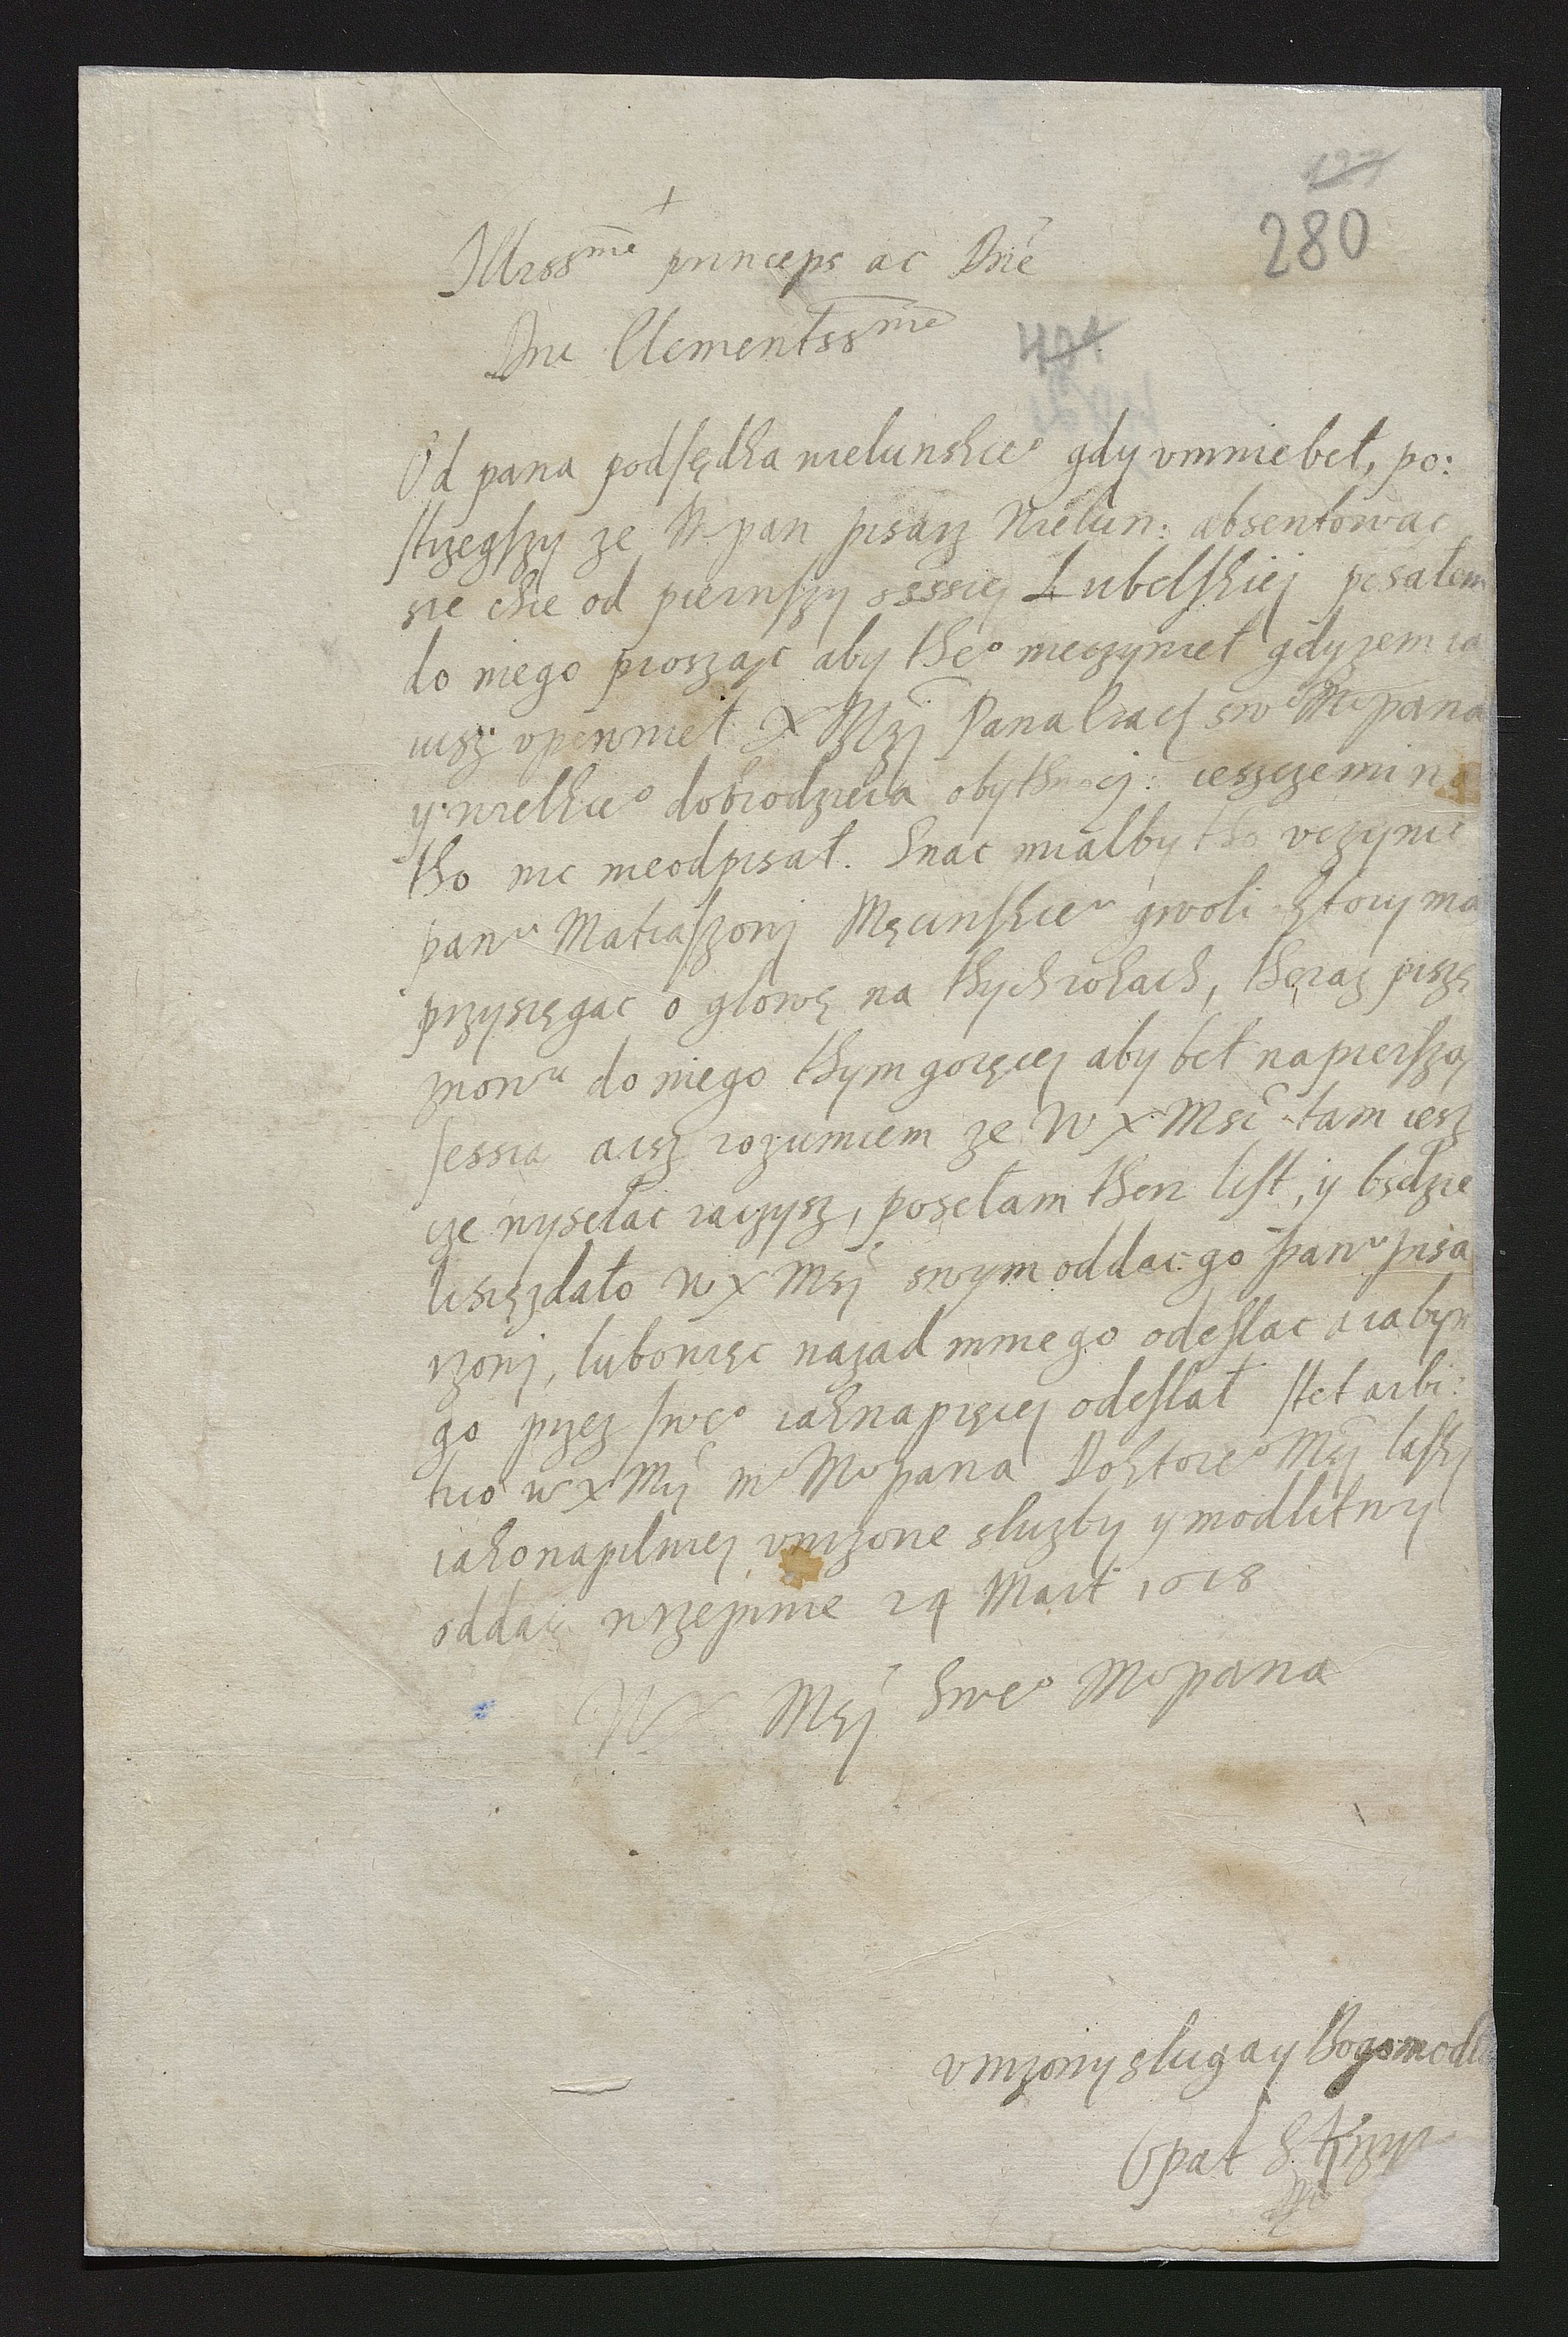 127
280
+
Illrssme princeps ac Dne
Dne Clementssme
401
Od pana podsędka wielunskieo gdy vmnie beł, po:
strzegszy ze M pan pisarz Wielun: absentowac
sie chce od pierwszy sessiej Lubelskiej pisałem
do niego prosząc aby theo nieczynieł gdyzem ia
iusz vpewnieł X Mczi Pana
y wielkieo dobrodzieia obythnocj: ieszczemi na
tho nic nieodpisał. Snac mialby tho vczynic
panu Matiaszowj Męcinskieu gwoli ktory ma
przysięgac o głowę na thych rokach, theraz piszę
znowu do niego thym goręcej aby beł na pierszą
sessia a isz rozumiem ze W X Msc tam iesz
cze wysełac raczysz, posełam then list, y będzie
lisięzdało W X Mscj swym oddac go panu pisa
rzowj, lubowięc nazad mnie go odesłac a iabym
go przez sweo iaknapręcej odesłał stet arbi:
trio W X Mcj mo Mo pana Doktoreo Mcj łasky
iakonapilniej vnizone słuzby y modlitwy
oddaię w rzejnie 24 Mart 1618
W X Mcj Sweo Mo pana
vnizony sługa y Bogomodl
Opat S Krzy